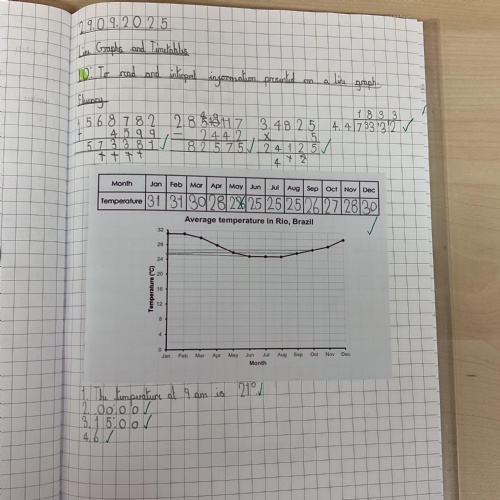 29.09.2025
Line Graphs and Timetables
LO: To read and interpret information presented on a line graph.
Fluency
1. 568782 2. 3. 4825 4. 4 7332
+ 4599 - 2442 x 5 1833
573381 82575 24125
Month Jan Feb Mar Apr May Jun Jul Aug Sep Oct Nov Dec
Temperature 31 31 30 28 25 25 25 26 27 28 30
Average temperature in Rio, Brazil
Temperature (°C)
32
28
24
20
16
12
8
4
0
Jan Feb Mar Apr May Jun Jul Aug Sep Oct Nov Dec
Month
1. The temperature at 9 am is 21°
2. 00:00
3. 15:00
4. 6